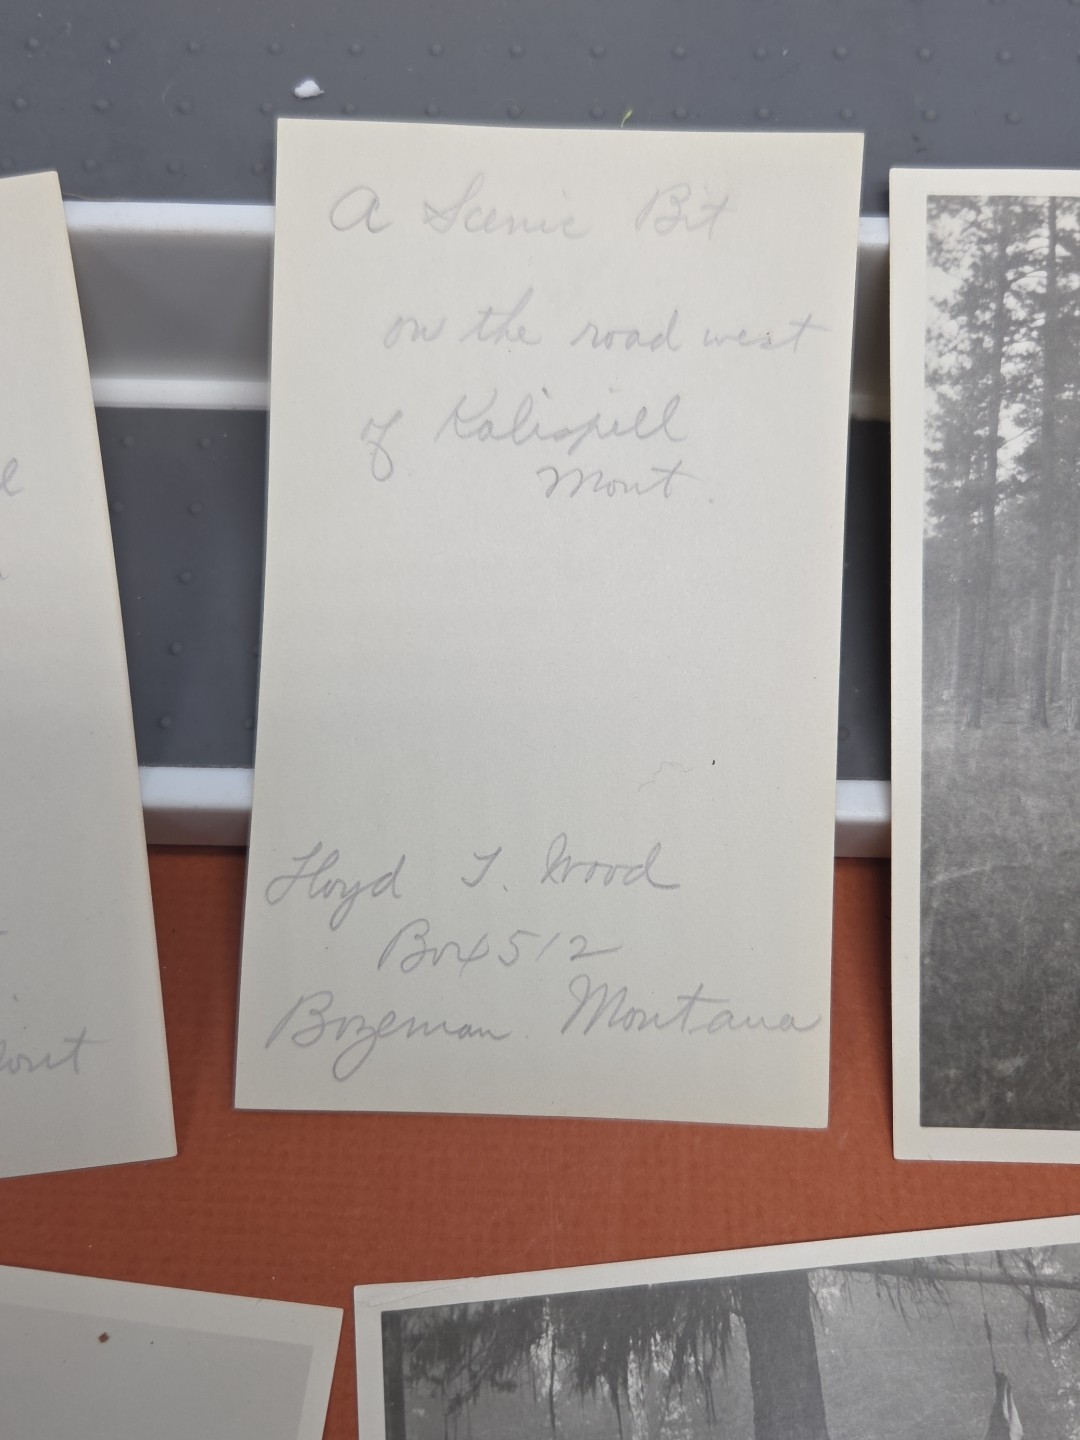 A Scenic Bit
on the road west
of Kalispell
Mont.
Floyd T. Wood
Box 512
Bozeman Montana